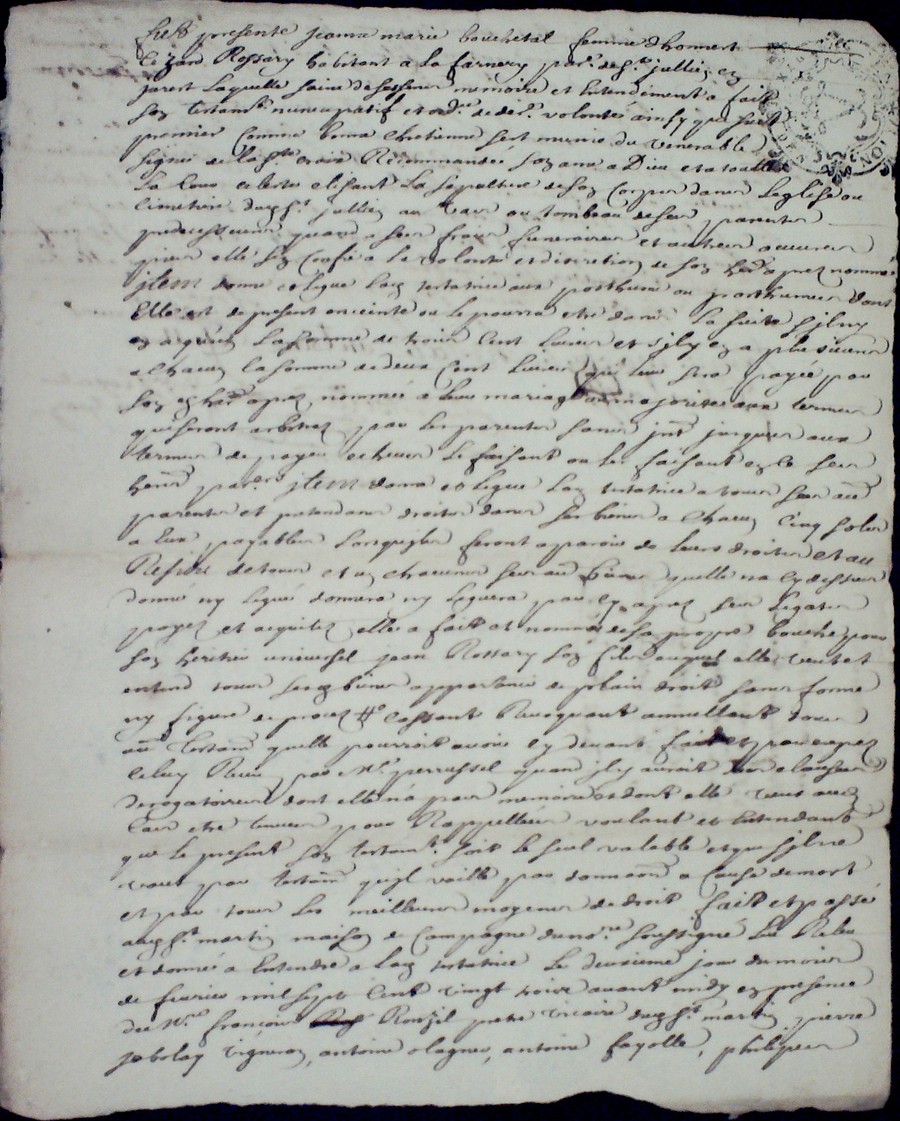 presente jeanne marie bouchetal femme d'homert
Jean Rossary habitant a la farnery par. de st jullien en
jarest laquelle saine de ses sens memoire et Entendement a fait
son testamt nuncupatif et de der. volonté ainsy que suit
premier comme bonne chretienne sest munie du venerable
signe de la ste croix Recommandé son ame a Dieu et a toutte
La Cour celeste elisant La sepulture de son Corps dans Leglise ou
Cimetiere dud st jullien au vas ou tombeau de ses parents
predecesseurs quand a ses fraix funeraires et autres œuvres
pies elle sen confie a la volonté et discretion de son herer apres nommé
jtem donne et legue lad testatrice aux posthume ou posthumes dont
Elle est de present enceinte ou le pourra etre dans La suite sil ny
en a quun La somme de trois Cent Livres et sil y en a plusieurs
a chacun la somme de deux Cent Livres qui leur sera payée par
son herer apres nommé a leur mariage ou majorité aux termes
qui seront arbitrez par les parents sans jnt jusques aux
termes de payer echeus le faisant ou les faisant en ce ses
hers par. jtem donne et legue lad testatrice a tous ses aus
parents et pretendans droits dans ses biens a Chacun Cinq sols
a Eux payables lorsquils feront aparoir de leurs droits et au
Residu de tous et un chacuns ses aus biens quelle na cy dessus
donné ny legué donnera ny leguera par cy apres ses legats
payez et acquitez elle a fait et nommé de sa propre bouche pour
son heritier universel jean Rossary son fils auquel elle veut et
entend tous ses biens appartenir de plain droit sans forme
ny figure de procez Cassant Revoquant annullant tous
aus testamt quelle pourroit avoir cy devant fait et par exprez
Celuy Receu par Me perrussel quand jl y auroit des clauses
derogatoires dont elle na pas memoire et dont elle veut aud
Cas etre tenues pour Rappellées voulant et Entendant
que le present son testamt soit le seul valable et que sil ne
vaut par testamt quil vaille par donnaon a cause de mort
et par tous les meilleurs moyens de droit fait et passé
aud st martin maison de Campagne du nore soussigné Lu Releu
et donné a Entendre a lad testatrice Le deuxieme jour du mois
de fevrier mil sept Cent vingt trois avant midy en presence
de Mre françois Rouzil pretre vicaire dud st martin, pierre
jabolay vigneron, antoine olagnier, antoine fayolle, philippe